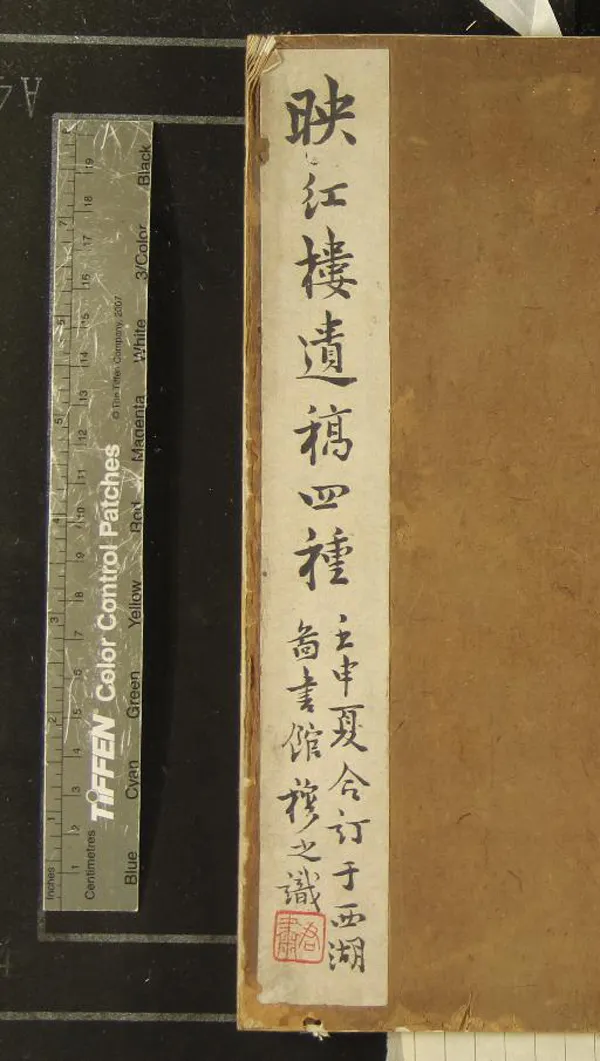 映红楼遺稿四種
壬申夏合订于西湖
啚書館 穆之識
TIFFEN® Color Control Patches
© The Tiffen Company, 2007
Inches
1 2 3 4 5 6 7
Centimetres
1 2 3 4 5 6 7 8 9 10 11 12 13 14 15 16 17 18 19
Blue Cyan Green Yellow Red Magenta White 3/Color Black
A4